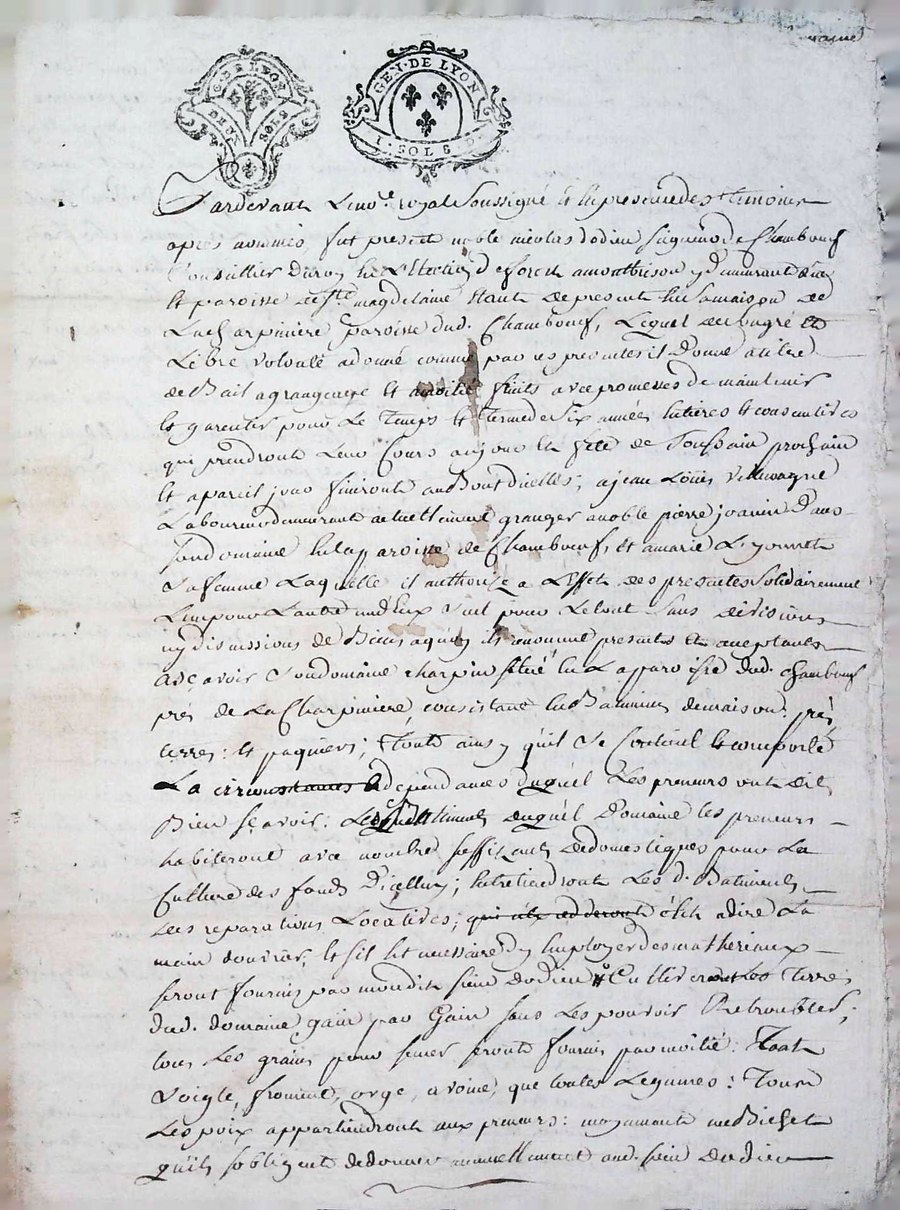 G. DE LYON
DEUX SOLS
GEN. DE LYON
I. SOLS
Pardevant Le nore. royal Soussigné et en presence des Temoins
apres nommés, fut present noble nicolas dodieu Seigneur de Chambœuf
Conseillier du roy en L'Election de forez a montbrison y demeurant
et paroisse de ste. magdelaine Etant de present en Sa maison de
La charpiniere paroisse dud. Chambœuf, Lequel de son gré et
Libre volonté a donné comme par ces presentes il Donne a titre
de Bail a grangeage et a moitié fruits avec promesses de maintenir
et garentir pour Le Temps et Terme de Six années entieres et consecutives
qui prendront Leur Cours au jour et fete de Toussain prochain
et a pareil jour finiront au Bout d'icelles; a jean Loüis villemagne
Laboureur demeurant actuellement granger a noble pierre joanin Dans
son domaine en La paroisse de Chambœuf, et a marie
Sa femme Laquelle il authorise a L'Effet des presentes Solidairement
L'un pour L'autre un d'eux Seul pour Le tout Sans division
ny discussions de Biens a quoy ils renoncent presents et acceptants
Asçavoir Son domaine charpin Situé en La parroisse dud. chambœuf
prés de La Charpiniere, consistant en Batiments de maison, prés
terres et paquiers; Tout ainsy qu'il Se Contient et comporte
La circonstances & dependances duquel Les preneurs ont dit
Bien sçavoir: duquel Domaine les preneurs
habiteront avec nombre suffisant de domestiques pour La
Culture des fonds D'icelluy; Entretiendront Les d. Batiments
des reparations Locatives; c'est a dire La
main d'ouvrier, et s'il est necessaire d'y Employer des matheriaux
seront fournis par mondit sieur dodieu Cultiveront Les Terres
dud. domaine gain par Gain sans Les pouvoir Retroubler;
tous Les grains pour semer seront fournis par moitié: Tant
Soigle, froment, orge, avoine, que toutes Legumes: Tous
Les poix appartiendront aux preneurs: moyennant
qu'ils s'obligent de donner annuellement aud. sieur Dodieu